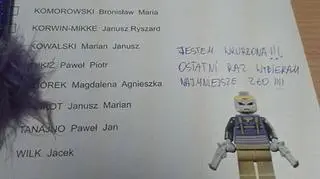 KOMOROWSKI Bronisław Maria
KORWIN-MIKKE Janusz Ryszard
KOWALSKI Marian Janusz
JESTEM WKURZONA !!!
Paweł Piotr
OSTATNI RAZ WYBIERAM
OREK Magdalena Agnieszka
NAJMNIEJSZE ZŁO !!!!
OT Janusz Marian
TANAJNO Paweł Jan
WILK Jacek